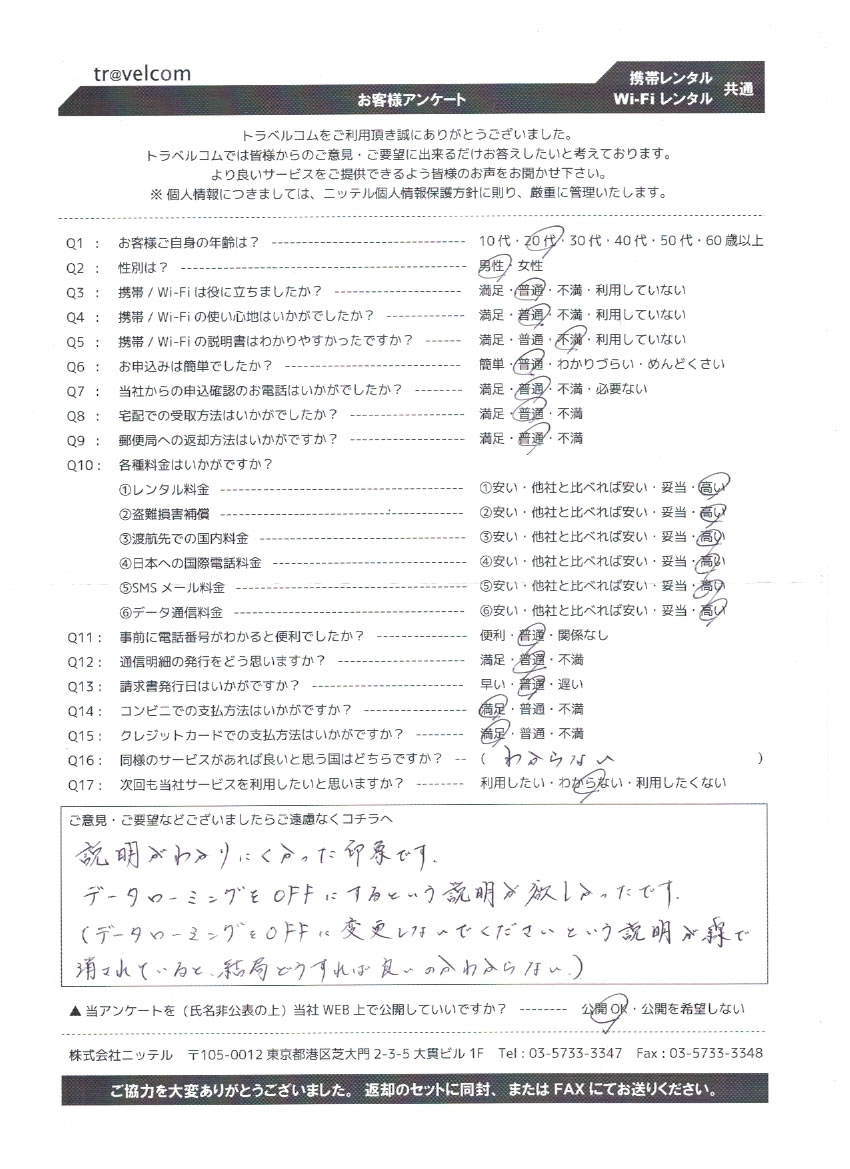 tr@velcom
お客様アンケート
携帯レンタル
Wi-Fi レンタル
共通
トラベルコムをご利用頂き誠にありがとうございました。
トラベルコムでは皆様からのご意見・ご要望に出来るだけお答えしたいと考えております。
より良いサービスをご提供できるよう皆様のお声をお聞かせ下さい。
※ 個人情報につきましては、ニッテル個人情報保護方針に則り、厳重に管理いたします。
Q1 : お客様ご自身の年齢は? 10代・20代・30代・40代・50代・60歳以上
Q2 : 性別は? 男性・女性
Q3 : 携帯 / Wi-Fi は役に立ちましたか? 満足・普通・不満・利用していない
Q4 : 携帯 / Wi-Fi の使い心地はいかがでしたか? 満足・普通・不満・利用していない
Q5 : 携帯 / Wi-Fi の説明書はわかりやすかったですか? 満足・普通・不満・利用していない
Q6 : お申込みは簡単でしたか? 簡単・普通・わかりづらい・めんどくさい
Q7 : 当社からの申込確認のお電話はいかがでしたか? 満足・普通・不満・必要ない
Q8 : 宅配での受取方法はいかがでしたか? 満足・普通・不満
Q9 : 郵便局への返却方法はいかがですか? 満足・普通・不満
Q10 : 各種料金はいかがですか?
①レンタル料金 ①安い・他社と比べれば安い・妥当・高い
②盗難損害補償 ②安い・他社と比べれば安い・妥当・高い
③渡航先での国内料金 ③安い・他社と比べれば安い・妥当・高い
④日本への国際電話料金 ④安い・他社と比べれば安い・妥当・高い
⑤SMSメール料金 ⑤安い・他社と比べれば安い・妥当・高い
⑥データ通信料金 ⑥安い・他社と比べれば安い・妥当・高い
Q11 : 事前に電話番号がわかると便利でしたか? 便利・普通・関係なし
Q12 : 通信明細の発行をどう思いますか? 満足・普通・不満
Q13 : 請求書発行日はいかがですか? 早い・普通・遅い
Q14 : コンビニでの支払方法はいかがですか? 満足・普通・不満
Q15 : クレジットカードでの支払方法はいかがですか? 満足・普通・不満
Q16 : 同様のサービスがあれば良いと思う国はどちらですか? ( わからない )
Q17 : 次回も当社サービスを利用したいと思いますか? 利用したい・わからない・利用したくない
ご意見・ご要望などございましたらご遠慮なくコチラへ
説明がわかりにくかった印象です.
データローミングをOFFにするという説明が欲しかったです.
(データローミングをOFFに変更しないでくださいという説明が線で
消されていると、結局どうすれば良いのかわからない.)
▲当アンケートを (氏名非公表の上) 当社 WEB 上で公開していいですか? 公開OK・公開を希望しない
株式会社ニッテル 〒105-0012 東京都港区芝大門 2-3-5 大貫ビル 1F Tel : 03-5733-3347 Fax : 03-5733-3348
ご協力を大変ありがとうございました。返却のセットに同封、または FAX にてお送りください。